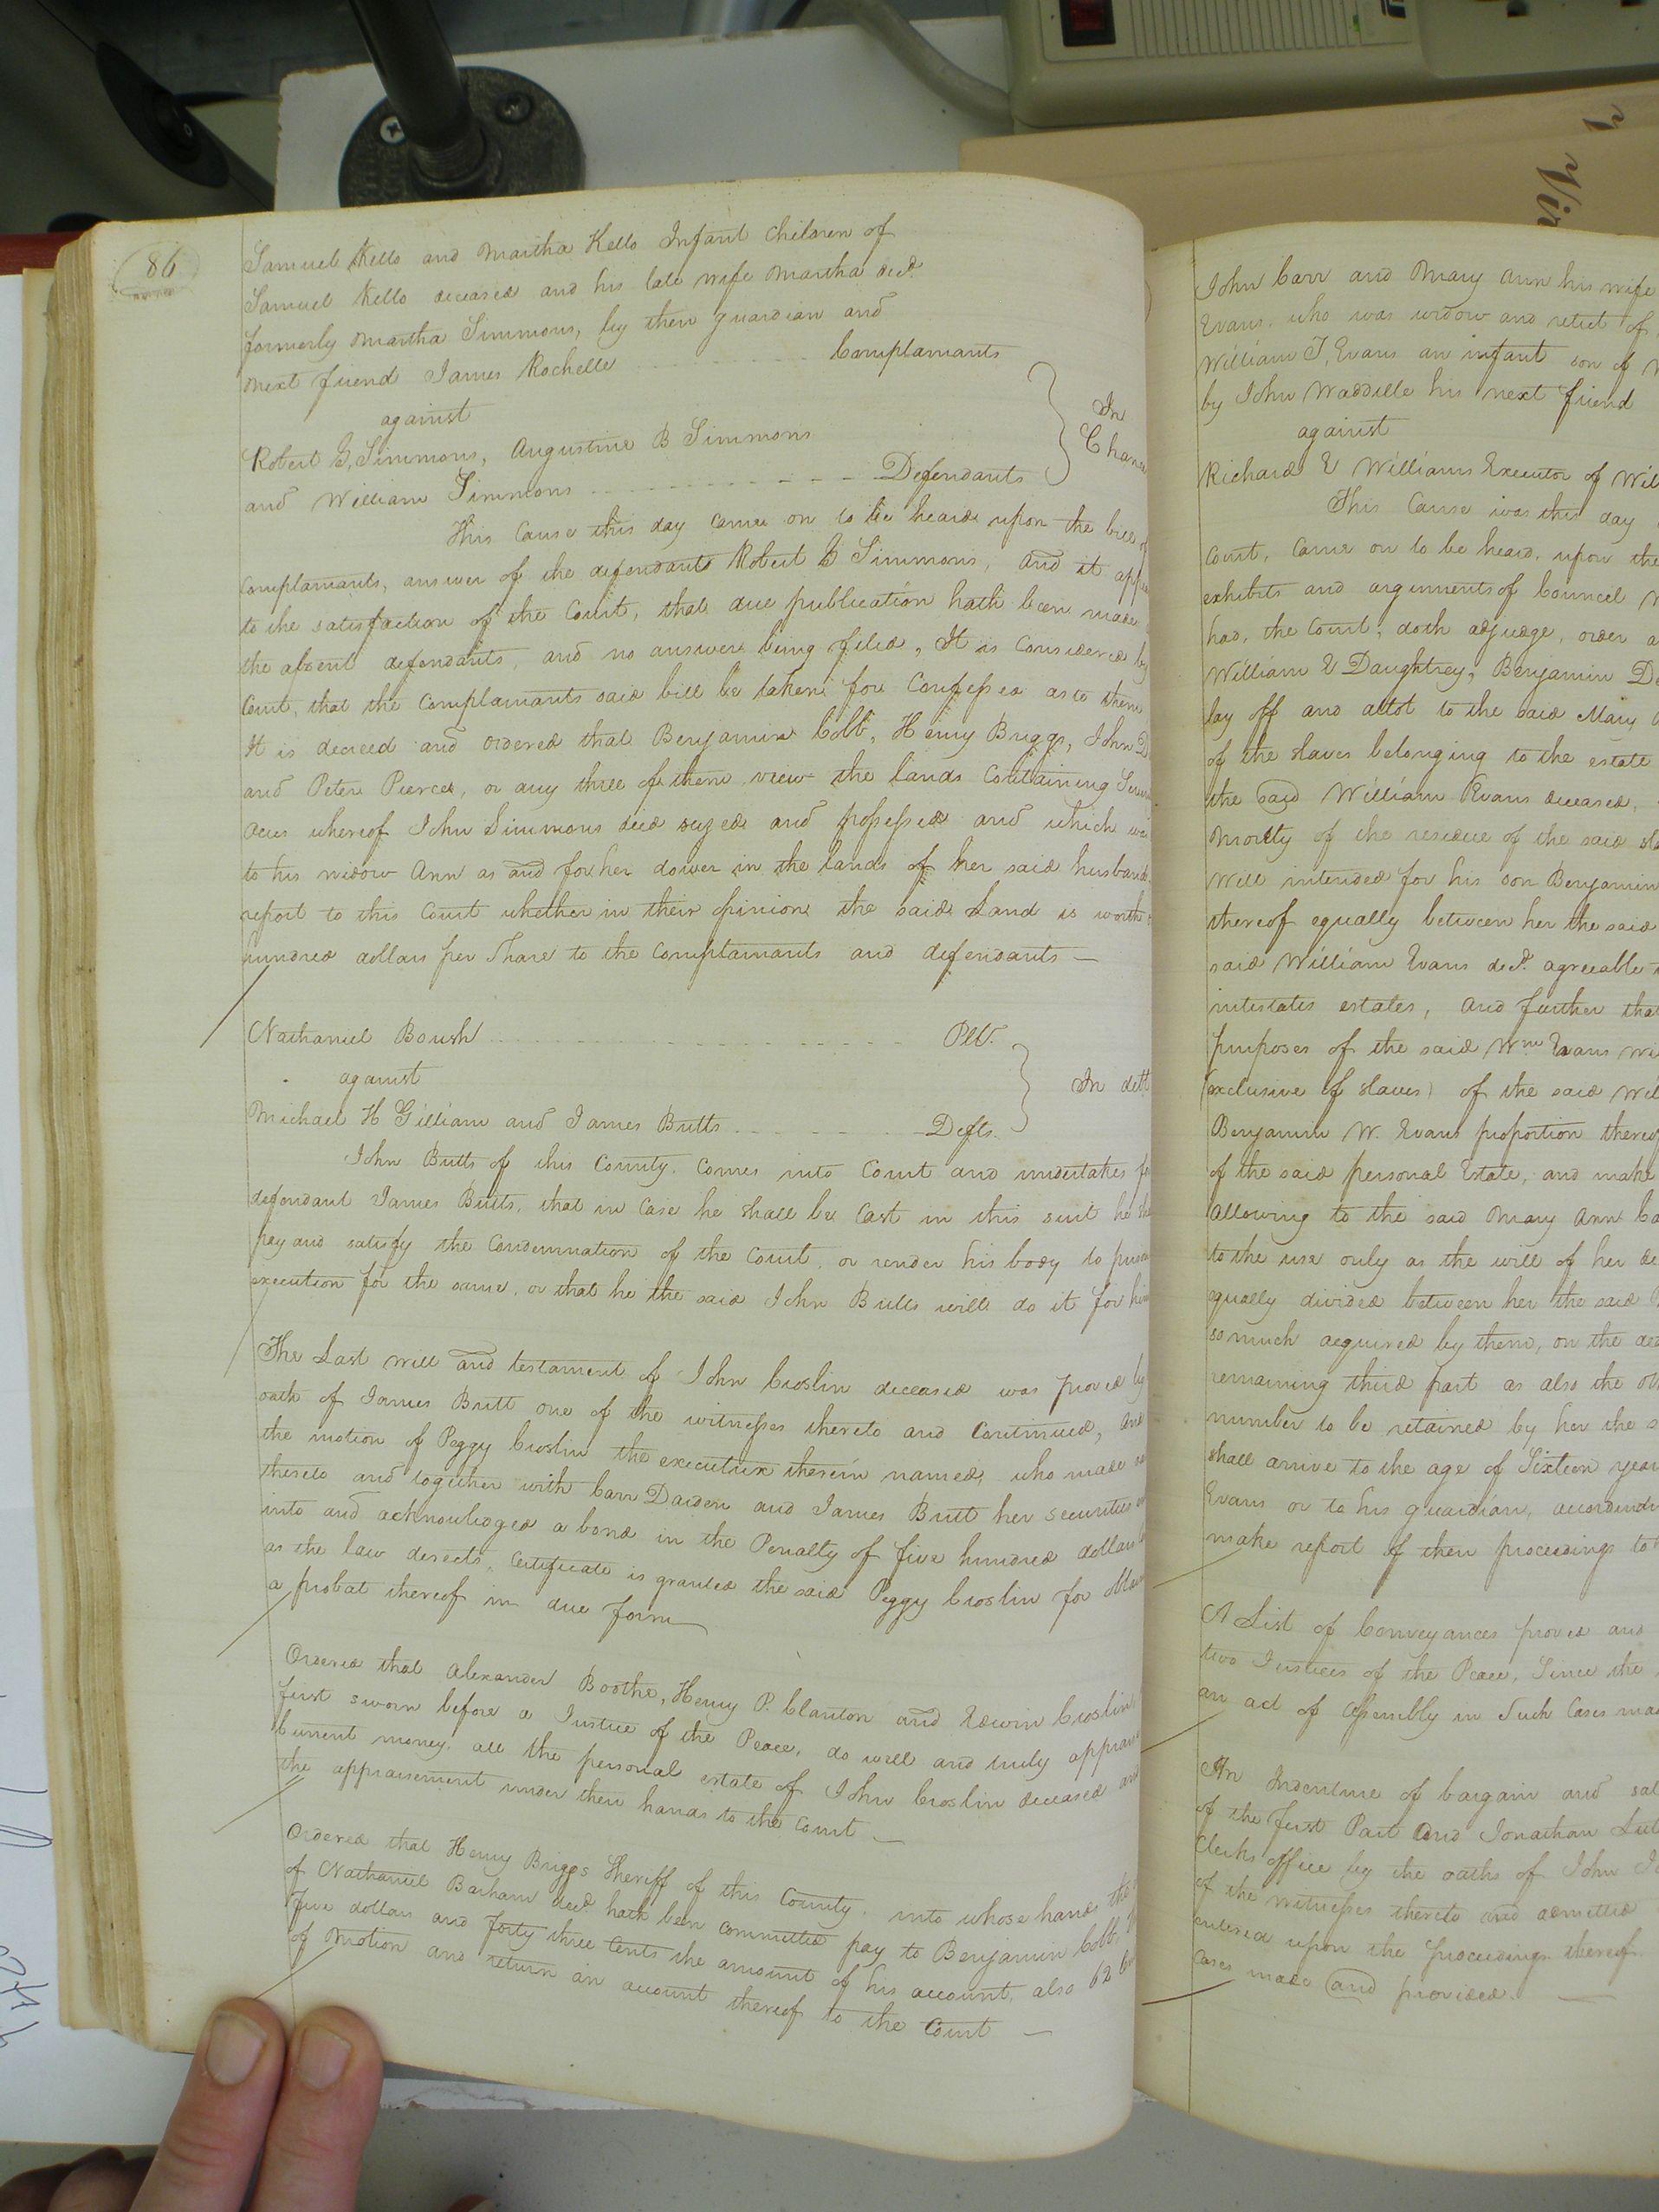 86
Samuel Kello and Martha Kello Infant Children of
Samuel Kello deceased and his late wife Martha decd.
formerly Martha Simmons, by their guardian and
next friend James Rochelle Complamants
against
Robert G. Simmons, Augustine B Simmons
and William Simmons Defendants
In
This Cause this day came on to be heard upon the bill
Complamants, answer of the defendants Robert G Simmons, and it
to the satisfaction of the Court, that due publication hath been made
the absent defendants, and no answer being filed, It is Considered by
Court, that the Complamants said bill be taken for Confessed as to them
It is decreed and ordered that Benjamin Cobb, Henry Briggs, John
and Peter Pierce, or any three of them, view the lands Containing
acres whereof John Simmons died seized and possessed and which
to his widow Ann as and for her dower in the lands of her said husband
report to this Court whether in their opinion the said Land is worth
hundred dollars per Share to the Complamants and defendants —
Nathaniel Boush Plt.
against
In debt
Michael H Gilliam and James Butts Defts.
John Butts of this County, Comes into Court and undertakes
defendant James Butts, that in Case he shall be Cast in this suit he
pay and satisfy the Condemnation of the Court, or render his body to
execution for the same, or that he the said John Butts will do it for
The Last will and testament of John Croslin deceased was proved by
oath of James Britt one of the witnesses thereto and Continued,
the motion of Peggy Croslin the executrix therein named, who made
thereto and together with Carr Darden and James Britt her securities
into and acknowledged a bond in the Penalty of five hundred dollars
as the law directs, Certificate is granted the said Peggy Croslin for
a probat thereof in due form
Ordered that Alexander Boothe, Henry P. Clanton and Edwin Croslin
first sworn before a Justice of the Peace, do well and truly
Current money, all the personal estate of John Croslin deceased and
the appraisement under their hands to the Court —
Ordered that Henry Briggs Sheriff of this County, into whose hands the
of Nathaniel Barham decd hath been committed pay to Benjamin Cobb
five dollars and forty three Cents the amount of his account, also 62
of Motion and return an account thereof to the Court —
John Carr and Mary Ann his wife
Evans, who was widow and relict of
William T. Evans an infant son of
by John Waddille his next friend
against
Richard E Williams Executor of
This Cause was this day
Court, Came on to be heard, upon the
exhibits and arguments of Councel
had, the Court, doth adjudge, order
William E Daughtrey, Benjamin
lay off and allot to the said Mary
of the slaves belonging to the estate
the said William Evans deceased,
moiety of the residue of the said
Will intended for his son Benjamin
thereof equally between her the said
said William Evans decd. agreeable
intestates estates, and further that
purposes of the said Wm Evans
(exclusive of slaves) of the said
Benjamin W. Evans proportion thereof
of the said personal Estate, and make
Allowing to the said Mary Ann
to the use only as the will of her
equally divided between her the said
so much acquired by them, on the
remaining third part as also the
number to be retained by her the
shall arrive to the age of Sixteen
Evans or to his guardian,
make report of their proceedings to
A List of Conveyances proved and
two Justices of the Peace, Since the
an act of Assembly in Such Cases
An Indenture of bargain and
of the first Part And Jonathan
Clerks office by the oaths of John
of the witnesses thereto and admitted
entered upon the proceedings thereof
Cases made and provided. —